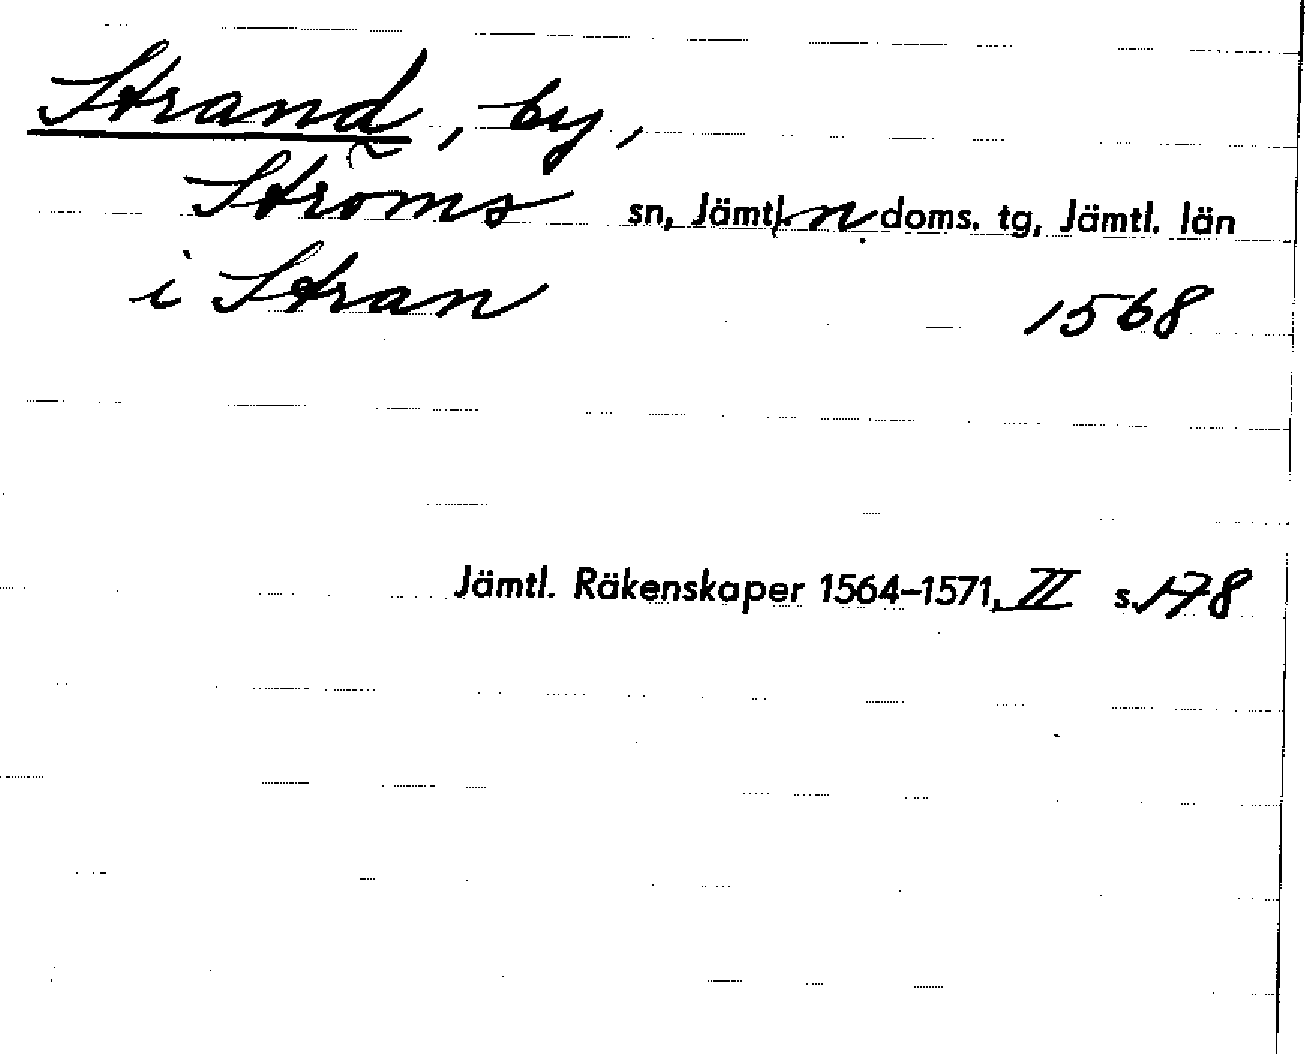 Strand, by,
Ströms sn, Jämtl. n. doms. tg, Jämtl. län
i Stran 1568
Jämtl. Räkenskaper 1564–1571, II s. 178